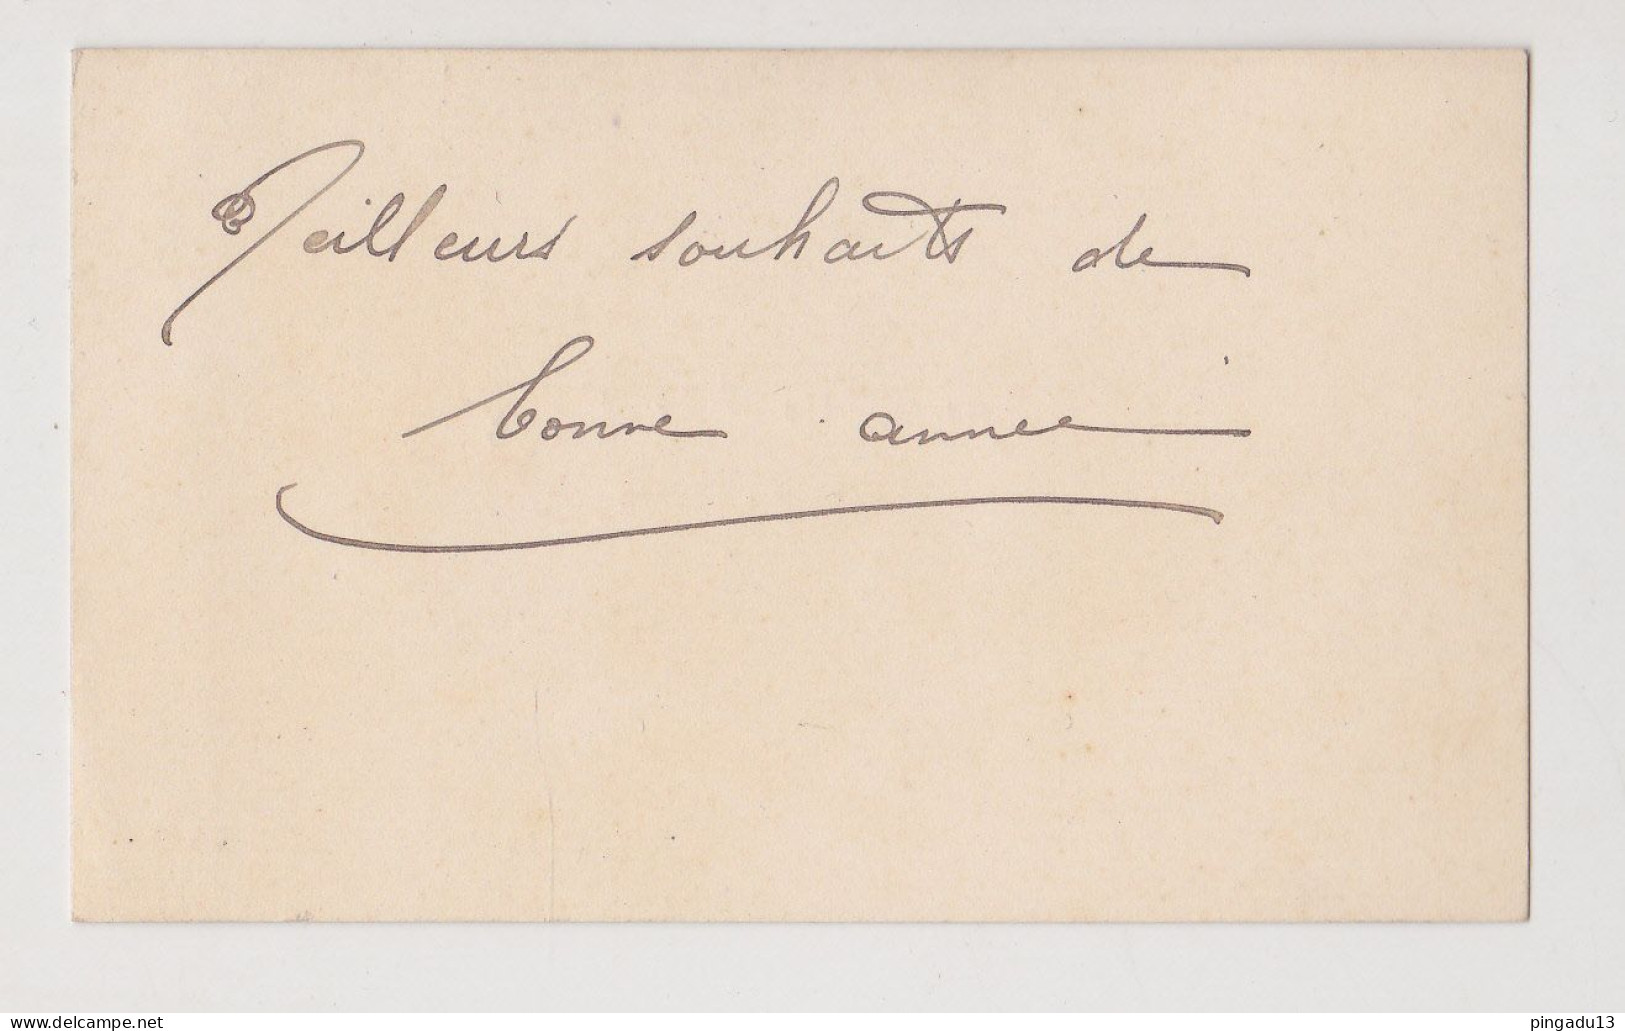 Meilleurs souhaits de
bonne année
www.delcampe.net
pingadu13